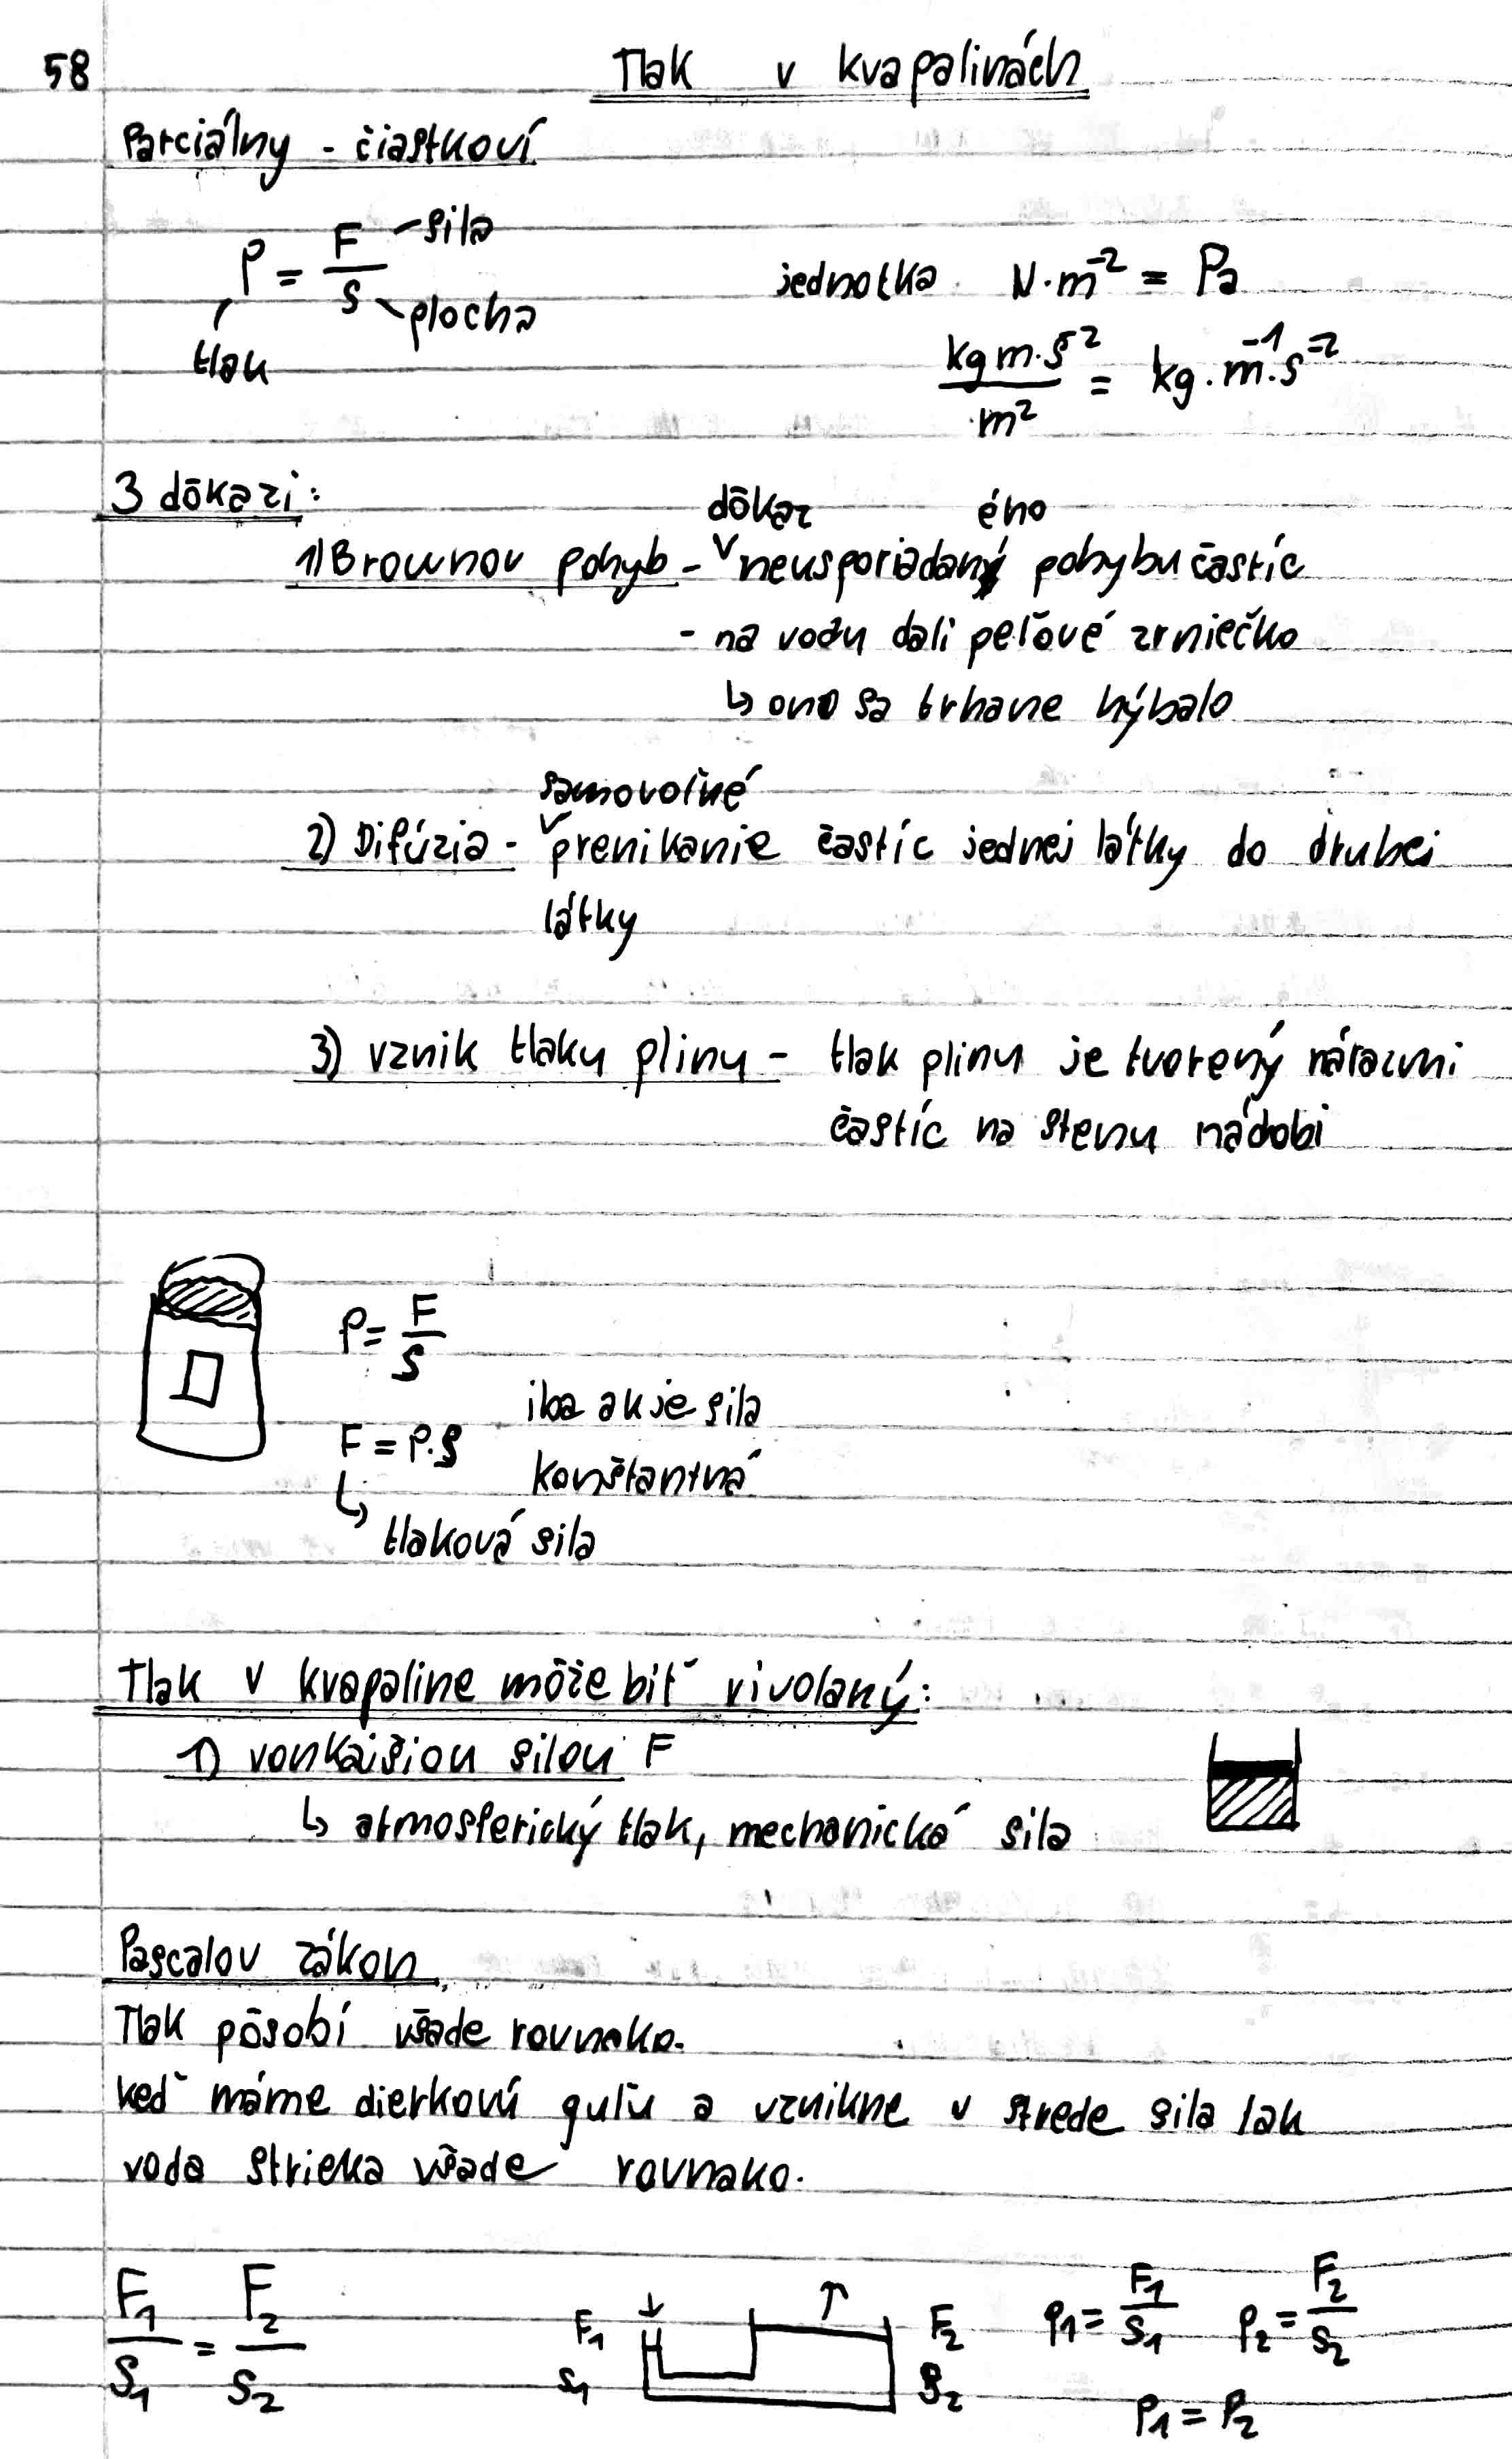 58
Tlak v kvapalinách
Parciálny - čiastkoví
p = F/S
sila
plocha
tlak
jednotka N·m⁻² = Pa
kg m·s⁻²/m² = kg·m⁻¹·s⁻²
3 dôkazi:
dôkaz ého
1) Brownov pohyb - neusporiadaný pohybu častíc
- na vodu dali peľové zrniečko
↳ ono sa trhane hýbalo
samovoľné
2) Difúzia - prenikanie častíc jednej látky do druhej
látky
3) vznik tlaku plinu - tlak plinu je tvorený nárazmi
častíc na stenu nádobi
p = F/S
F = p.S
iba ak je sila
konštantná
↳ tlaková sila
Tlak v kvapaline môže biť vivolaný:
1) vonkajšiou silou F
↳ atmosferický tlak, mechanická sila
Pascalov zákon
Tlak pôsobí všade rovnako.
keď máme dierkovú guľu a vznikne v strede sila tak
voda strieka všade rovnako.
F₁/S₁ = F₂/S₂
F₁
S₁
F₂
S₂
p₁ = F₁/S₁ p₂ = F₂/S₂
p₁ = p₂